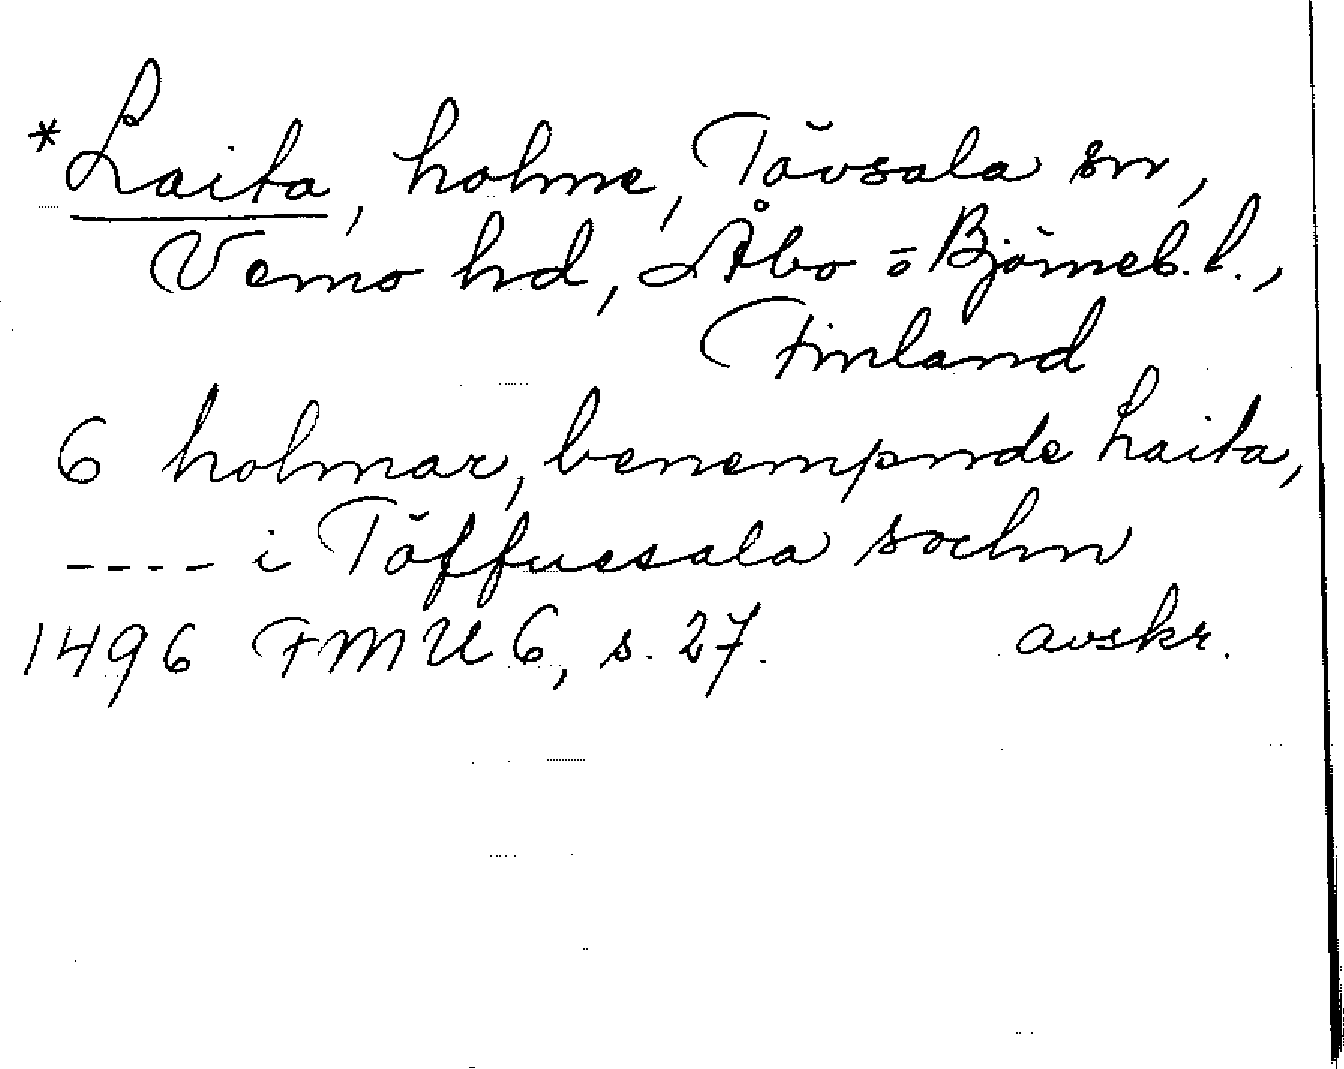 *Laita, holme, Tövsala sn,
Vemo hd, Åbo o Björneb. l.,
Finland
6 holmar, benempnde Laita,
---- i Töffuesala sochn
1496 FMU 6, s. 27. avskr.